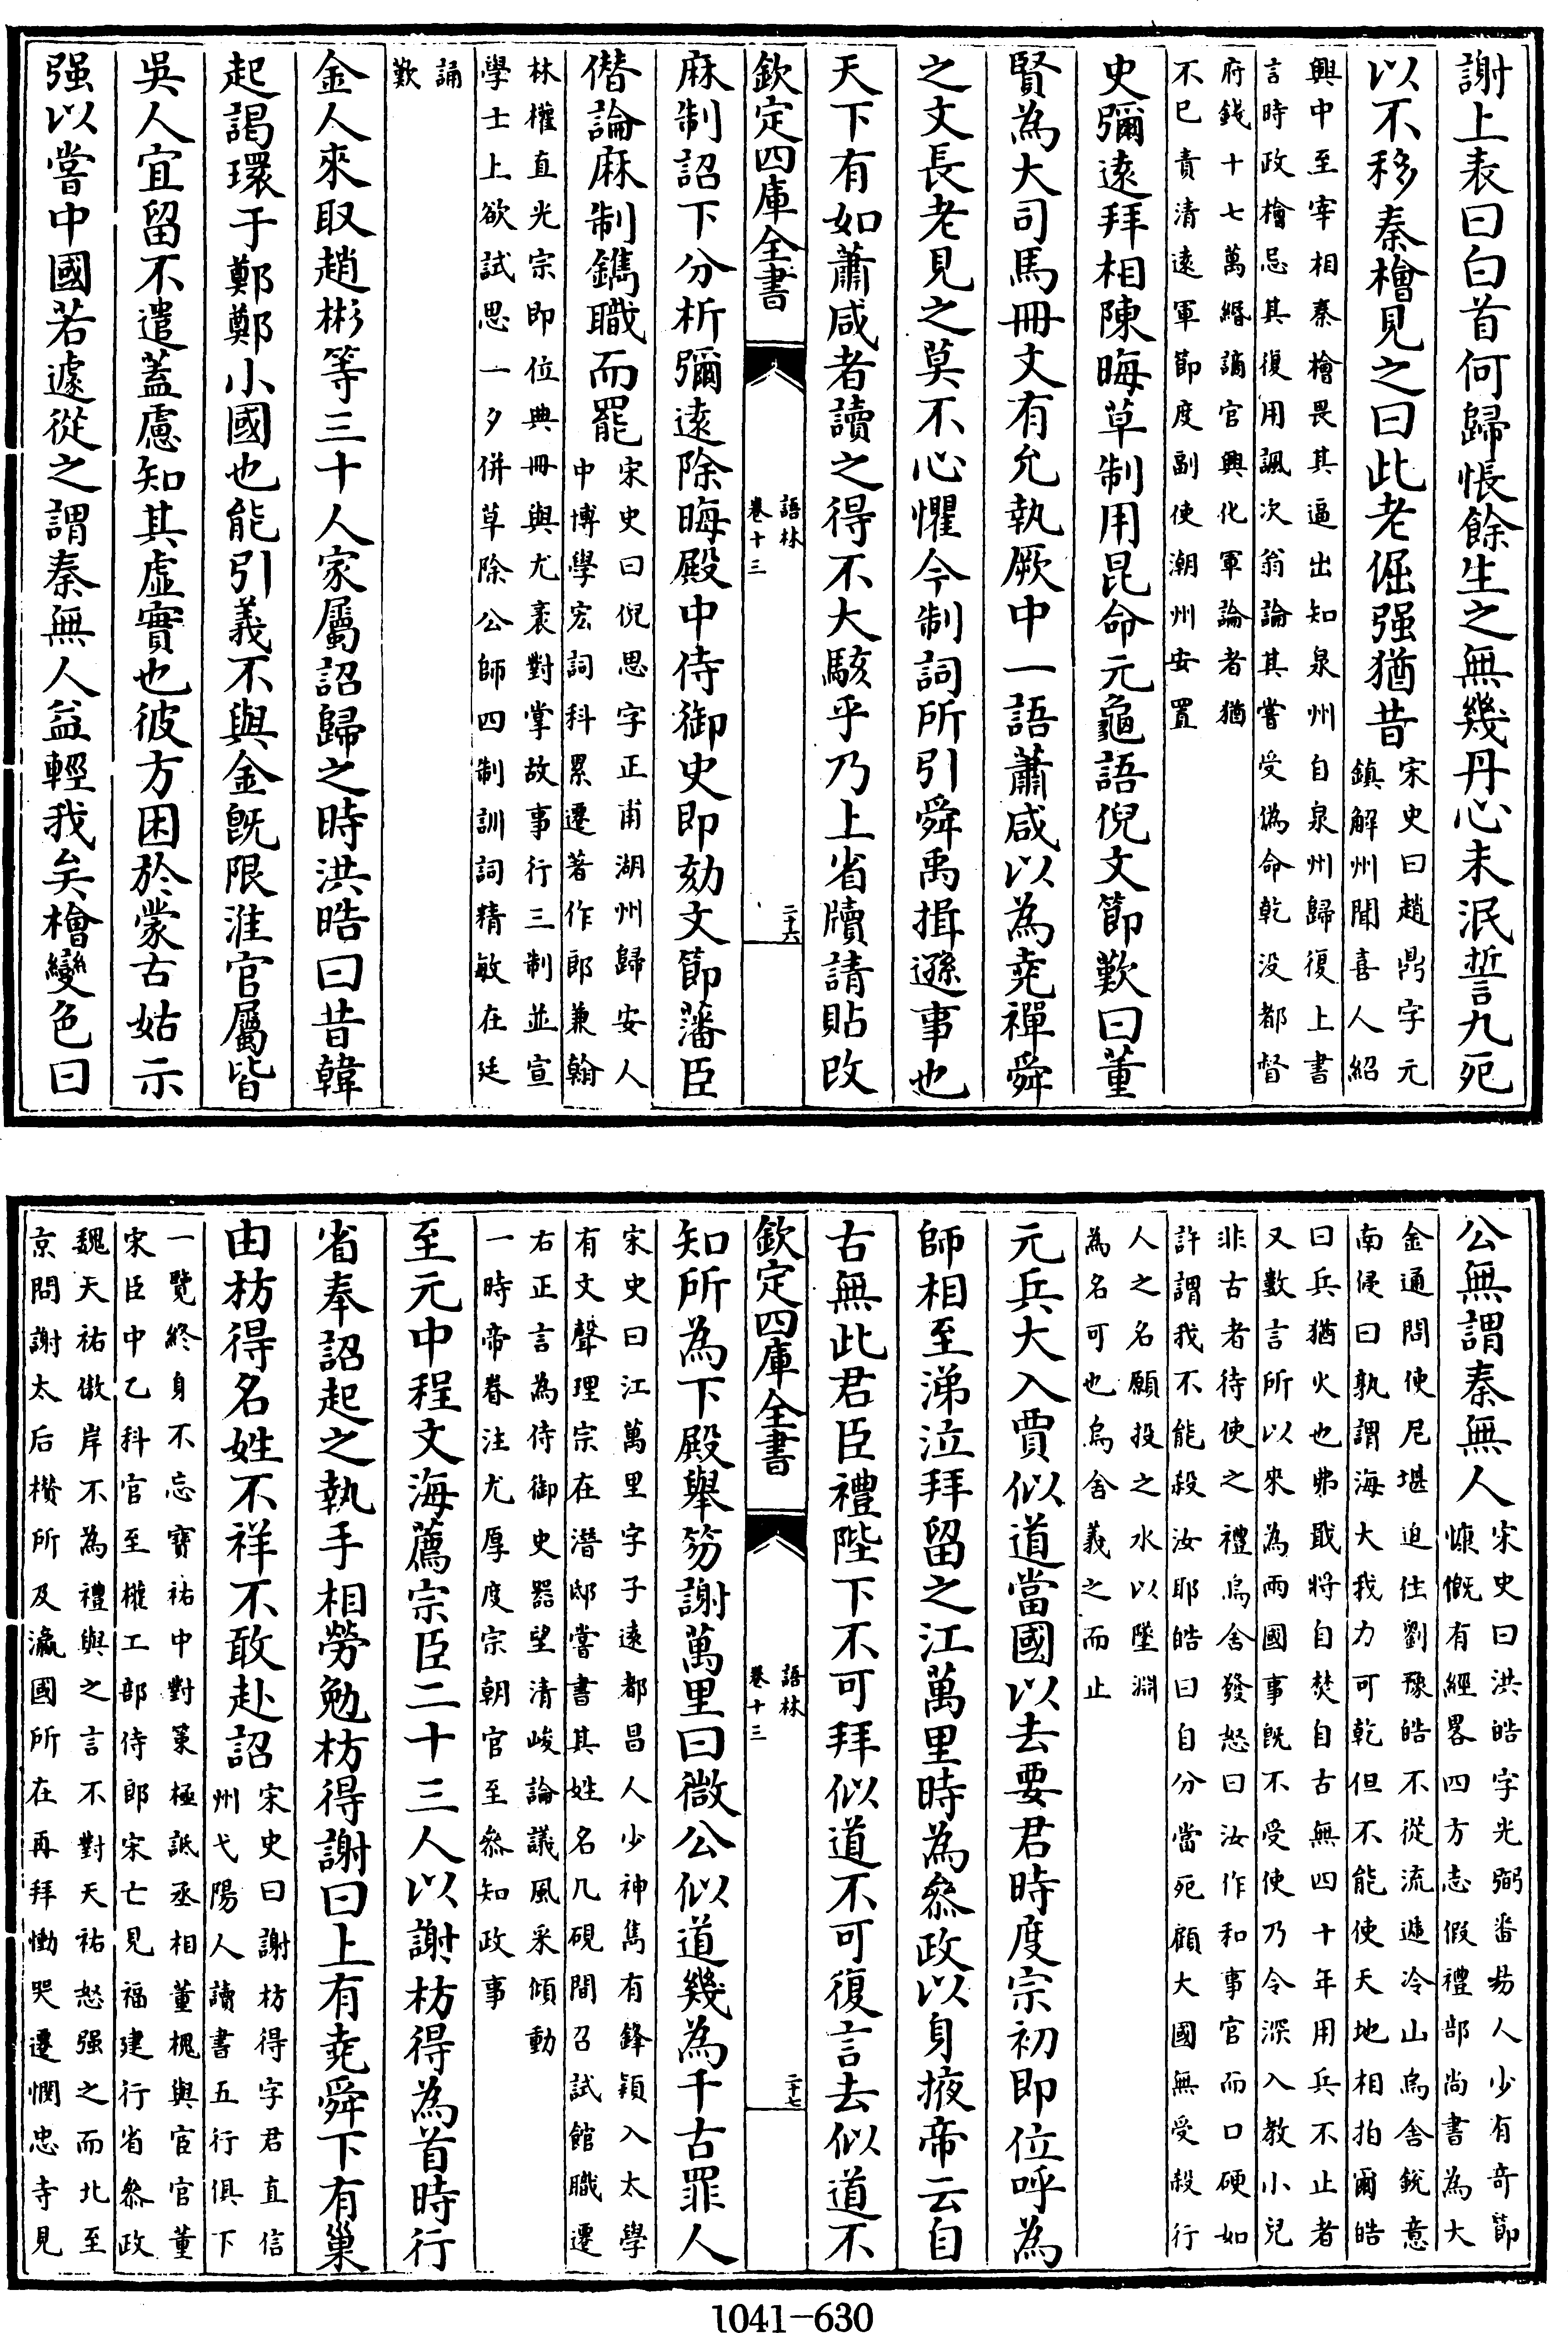 謝上表曰白首何歸悵餘生之無幾丹心未泯誓九死
以不移秦檜見之曰此老倔强猶昔
宋史曰趙鼎字元
鎮解州聞喜人紹
興中至宰相秦檜畏其逼出知泉州自泉州歸復上書
言時政檜忌其復用諷次翁論其嘗受偽命乾沒都督
府錢十七萬緡謫官興化軍論者猶
不已責清遠軍節度副使潮州安置
史彌遠拜相陳晦草制用昆命元龜語倪文節歎曰董
賢為大司馬冊文有允執厥中一語蕭咸以為堯禪舜
之文長老見之莫不心懼今制詞所引舜禹揖遜事也
天下有如蕭咸者讀之得不大駭乎乃上省牘請貼改
欽定四庫全書
語林
卷十三
二十六
麻制詔下分析彌遠除晦殿中侍御史即劾文節藩臣
僭論麻制鐫職而罷
宋史曰倪思字正甫湖州歸安人
中博學宏詞科累遷著作郎兼翰
林權直光宗即位典冊與尤袤對掌故事行三制並宣
學士上欲試思一夕併草除公師四制訓詞精敏在廷
誦
歎
金人來取趙彬等三十人家屬詔歸之時洪皓曰昔韓
起謁環于鄭鄭小國也能引義不與金既限淮官屬皆
吳人宜留不遣蓋慮知其虛實也彼方困於蒙古姑示
强以嘗中國若遽從之謂秦無人益輕我矣檜變色曰
公無謂秦無人
宋史曰洪皓字光弼番昜人少有奇節
慷慨有經畧四方志假禮部尚書為大
金通問使尼堪迫仕劉豫皓不從流遞冷山烏舍銳意
南侵曰孰謂海大我力可乾但不能使天地相拍爾皓
曰兵猶火也弗戢將自焚自古無四十年用兵不止者
又數言所以來為兩國事既不受使乃令深入教小兒
非古者待使之禮烏舍發怒曰汝作和事官而口硬如
許謂我不能殺汝耶皓曰自分當死顧大國無受殺行
人之名願投之水以墜淵
為名可也烏舍義之而止
元兵大入賈似道當國以去要君時度宗初即位呼為
師相至涕泣拜留之江萬里時為叅政以身掖帝云自
古無此君臣禮陛下不可拜似道不可復言去似道不
欽定四庫全書
語林
卷十三
二十七
知所為下殿舉笏謝萬里曰微公似道幾為千古罪人
宋史曰江萬里字子遠都昌人少神雋有鋒穎入太學
有文聲理宗在潛邸嘗書其姓名几硯間召試館職遷
右正言為侍御史器望清峻論議風采傾動
一時帝眷注尤厚度宗朝官至叅知政事
至元中程文海薦宗臣二十三人以謝枋得為首時行
省奉詔起之執手相勞勉枋得謝曰上有堯舜下有巢
由枋得名姓不祥不敢赴詔
宋史曰謝枋得字君直信
州弋陽人讀書五行俱下
一覽終身不忘寶祐中對策極詆丞相董槐與宦官董
宋臣中乙科官至權工部侍郎宋亡見福建行省叅政
魏天祐傲岸不為禮與之言不對天祐怒强之而北至
京問謝太后欑所及瀛國所在再拜慟哭遷憫忠寺見
1041-630